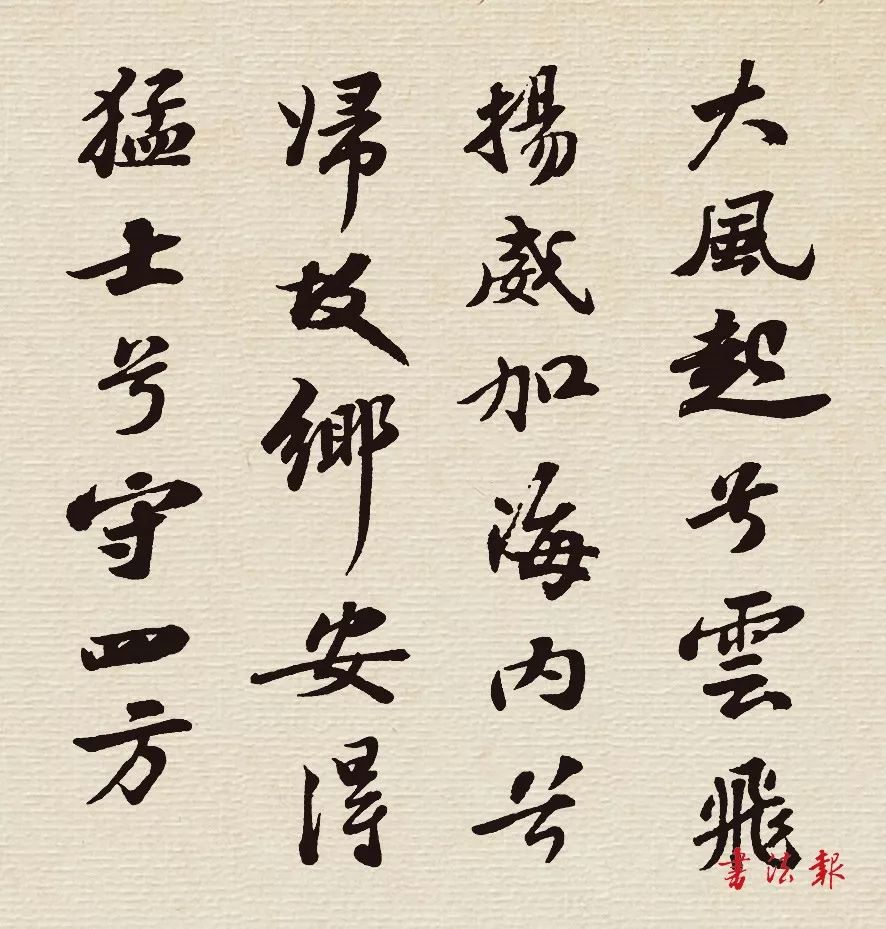 大風起兮雲飛
揚威加海内兮
帰故鄉安得
猛士兮守四方
书法報